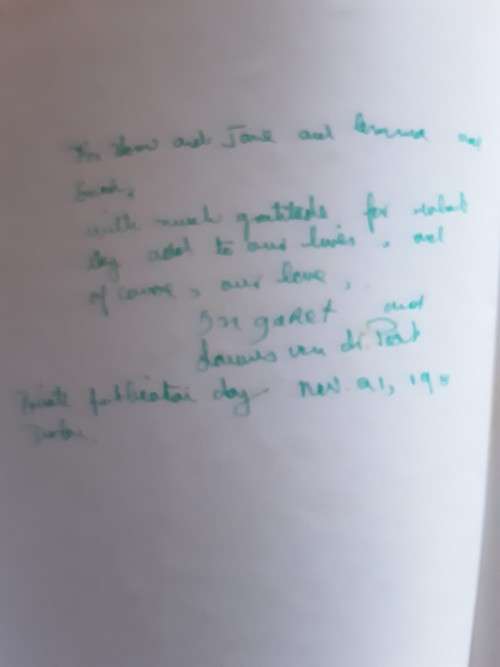 and Jane and and
with much gratitude for what
they add to our lives, and
of course, our love,
Ingaret and
Laurens van der Post
Private publication day Nov. 21, 19